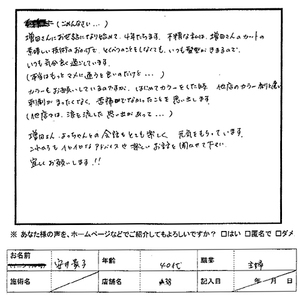 (ごめんなさい…)
増田さんにお世話になり始めて、4年たちます。不精な私は、増田さんのカットの
素晴しい技術のおかげで、とくべつなことをしなくても、いつも髪型がきまるので、
いつも気分良く過ごしています。
(本当はもっとマメに通うと良いのだけど…)
カラーもお願いしているのですが、はじめてカラーをした時、他店のカラー剤と違い
刺激がまったくなく、感動したことを思い出します
(他店では、涙を流した思い出があって…)
増田さん、よっちゃんとの会話もとても楽しく、元気をもらっています。
これからもイロイロなアドバイスや楽しいお話を聞かせて下さい。
宜しくお願いします!!
※ あなた様の声を、ホームページなどでご紹介してもよろしいですか? □はい □匿名で □ダメ
お名前 年齢 40代 職業 主婦
施術名 店舗名 記入日 年 月 日